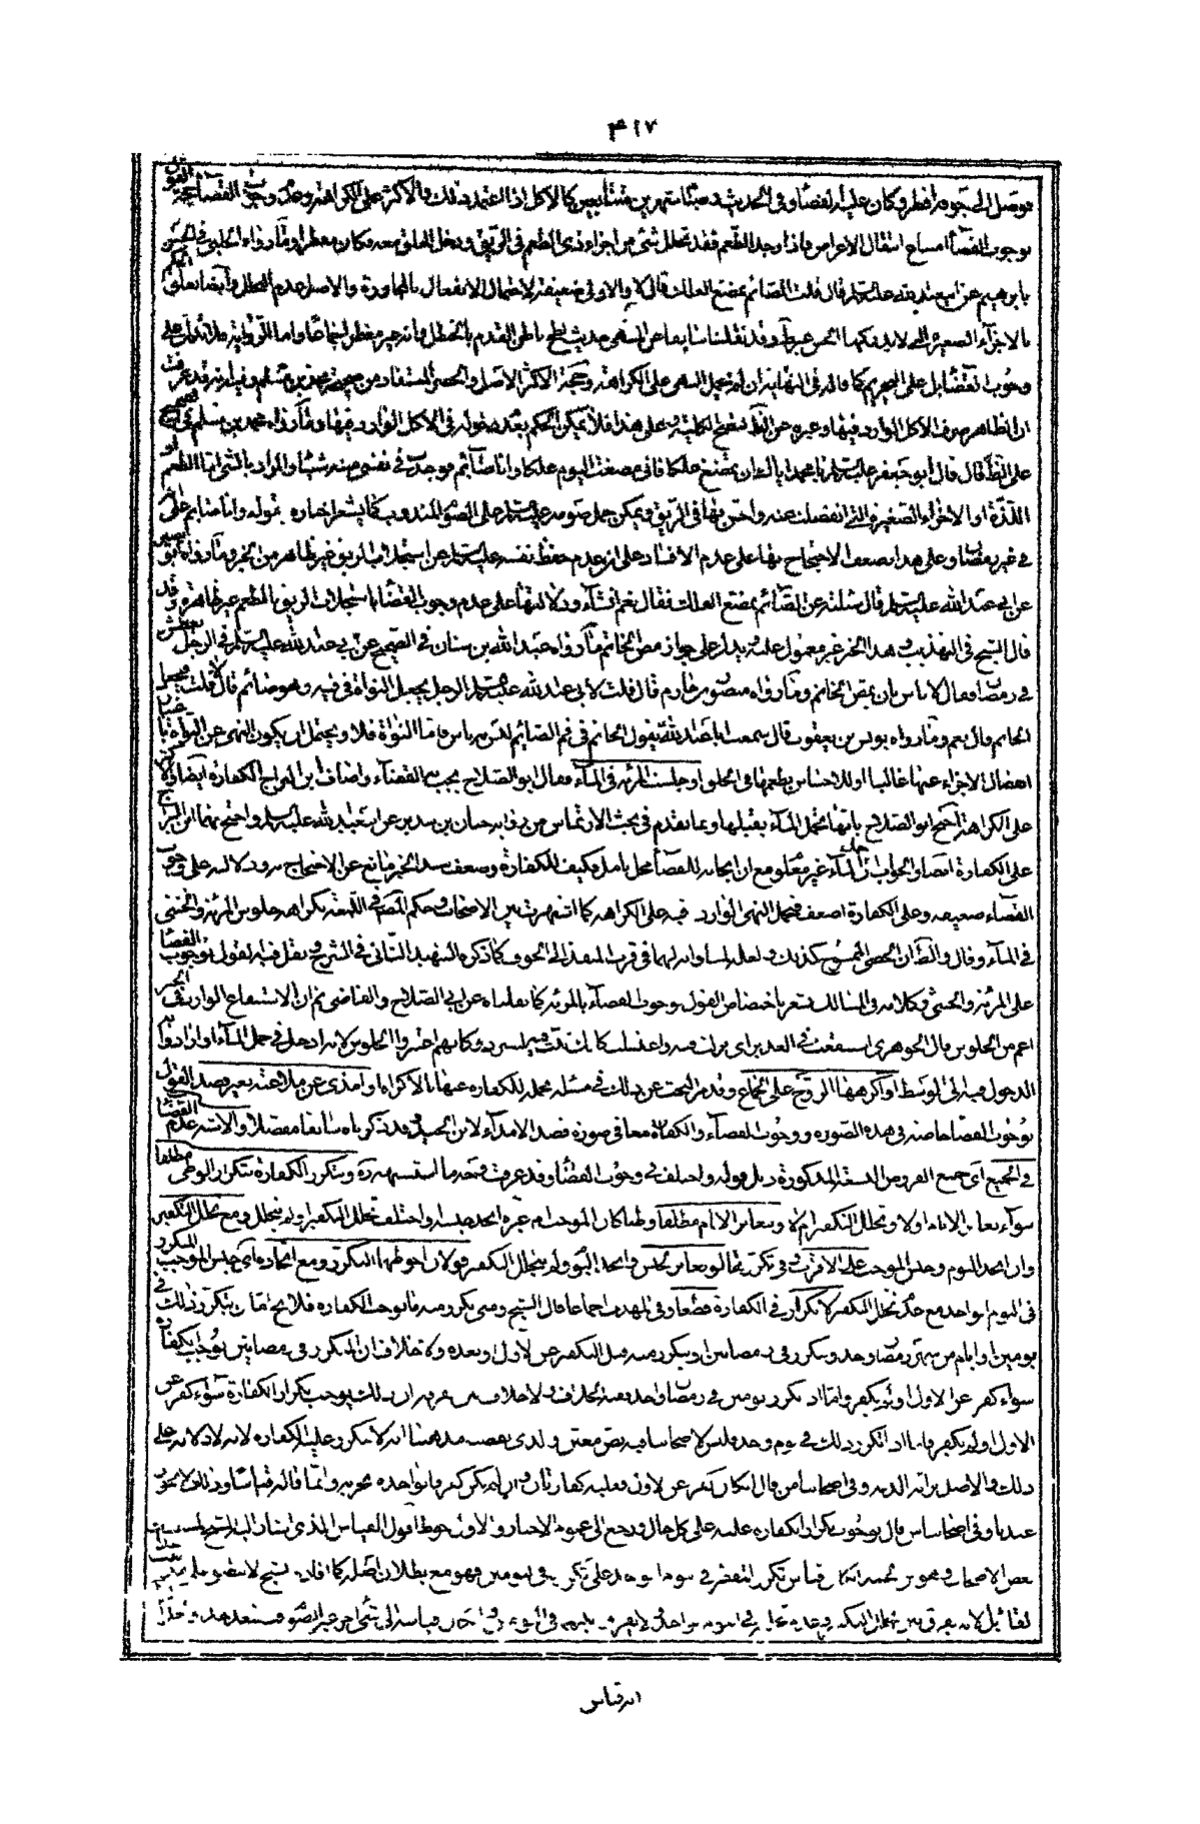 ٤١٧
فوصل الى جوفه افطر وكان عليه القضاء وفي الحديث صيام شهرين متتابعين كالاكل اذا اعتمد ذلك والاكثر على الكراهة وعدم وجوب القضاء حجة القول
بوجوب القضاء امتناع انتقال الاعراض فاذا وجد الطعم فقد تحلل شئ من اجزاء ذي الطعم في الريق ودخل الحلق معه فكان مفطرا وما رواه الحلبي في الحسن
بابرهيم عن ابي عبد الله عليه السلام قال قلت الصائم يمضغ العلك قال لا والاولى ضعيفة لاحتمال الانفعال بالمجاورة والاصل عدم التحلل وايضا تعلق الحكم
بالاجزاء الصغيرة التي لا يدركها الحس غير وقد نقلنا سابقا عن المنتهى حديث لطخ باطن القدم بالحنظل وانه غير مفطر اجماعا واما الرواية فلا تدل على
وجوب القضاء بل على التحريم كما قاله في النهاية الا ان تحمل النهى على الكراهة وحجة الاكثر الاصل والحصر المستفاد من صحيحة محمد بن مسلم وفيه انه قد عرفت
ان الظاهر صرف الاكل الوارد فيها وغيره عن الظ على هذا فلا يمكن الحكم بعدم دخوله في الاكل الوارد فيها وما رواه محمد بن مسلم في الصحيح
على الظ قال قال ابو جعفر عليه السلام يا محمد اياك ان تمضغ علكا فاني مضغت اليوم علكا وانا صائم فوجدت في نفسي منه شيئا والمراد بالشئ اما الطعم او
اللذة او الاجزاء الصغيرة التي انفصلت عنه واحس بها في الريق ويمكن حمل صومه عليه السلام على الصوم المندوب كما يشعر اخباره بقوله وانا صائم على
في غير رمضان وعلى هذا يضعف الاحتجاج بها على عدم الافساد على ان عدم حفظ نفسه عليه السلام عن استجلاب الريق غير ظاهر من الخبر وما رواه ابو بصير
عن ابي عبد الله عليه السلام قال سئلته عن الصائم يمضغ العلك فقال نعم ان شاء ودلالتها على عدم وجوب القضاء باستجلاب الريق بالطعم غير ظاهرة وقد
قال الشيخ في التهذيب هذا الخبر غير معمول عليه ويدل على جواز مص الخاتم ما رواه عبد الله بن سنان في الصحيح عن ابي عبد الله عليه السلام في الرجل يعطش
في رمضان قال لا باس بان يمص الخاتم وما رواه منصور بن حازم قال قلت لابي عبد الله عليه السلام الرجل يجعل النواة في فيه وهو صائم قال لا قلت فيجعل
الخاتم قال نعم وما رواه يونس بن يعقوب قال سمعت ابا عبد الله يقول الخاتم في فم الصائم ليس به باس فاما النواة فلا ويحتمل ان يكون النهى عن النواة باعتبار
انفصال الاجزاء عنها غالبا او للاحساس بطعمها في الحلق او جلست المراة في الماء فقال ابو الصلاح يجب القضاء واضاف ابن البراج الكفارة ايضا والاكثر
على الكراهة احتج ابو الصلاح بانها تحمل الماء بقبلها وبما تقدم في بحث الارتماس من رواية حنان بن سدير عن ابي عبد الله عليه السلام واحتج بهما ابن البراج
على الكفارة ايضا والجواب ان حمل الماء غير معلوم مع ان ايجابه للقضاء محل تامل فكيف للكفارة وضعف سند الخبر مانع عن الاحتجاج به ودلالته على وجوب
القضاء ضعيفة وعلى الكفارة اضعف فيحمل النهى الوارد فيه على الكراهة كما اشتهرت بين الاصحاب وحكم المصنف في اللمعة بكراهة جلوس المراة والخنثى
في الماء وقال والظ ان الخصى الممسوح كذلك ولعله لمساواته لهما في قرب المنفذ الى الجوف كما ذكره الشهيد الثاني في الشرح ونقل فيه القول بوجوب القضاء
على المراة والخنثى وكلامه في المسالك يشعر باختصاص القول بوجوب القضاء بالمراة كما نقلناه عن ابي الصلاح والقاضي ثم ان الاستنقاع الوارد في الخبر
اعم من الجلوس قال الجوهري استنقعت في الغدير اي نزلت فيه واغتسلت كانك ثبت فيه لتبرد وكانهم اختاروا الجلوس لانه ادخل في حمل الماء او ارادوا به
الدخول فيه الى الوسط او اكرهها الزوج على الجماع وقد مر البحث عن ذلك في مسئلة تحمله للكفارة عنها بالاكراه او امذى عن ملاعبة بغير قصد القول
بوجوب القضاء خاصة في هذه الصورة ووجوب القضاء والكفارة معا في صورة قصد الامذاء لابن الجنيد وقد ذكرناه سابقا مفصلا والاشهر عدم القضاء
في الجميع اي جميع الفروض التسعة المذكورة ذيل قوله واختلف في وجوب القضاء وقد عرفت صحة ما استشهرته وتتكرر الكفارة بتكرر الوطي مطلقا
سواء تغاير الايام او لا وتخلل التكفير ام لا وبتغاير الايام مطلقا وطئا كان الموجب ام غيره اتحد جنسه او اختلف تخلل التكفير او لم يتخلل ومع تخلل التكفير
وان اتحد اليوم وجنس الموجب على الاقرب وفي تكررها لو تغاير الجنس واتحد اليوم ولم يتخلل التكفير قولان احوطهما التكرر ومع اتحاده اي جنس الموجب المتكرر
في اليوم الواحد مع عدم تخلل التكفير لا تكرار في الكفارة قطعا وفي المهذب اجماعا قال الشيخ ومتى تكرر منه ما يوجب الكفارة فلا يخ اما ان يتكرر ذلك في
يومين او ايام من شهر رمضان واحد ويتكرر في رمضانين او يتكرر منه قبل التكفير عن الاول او بعده ولا خلاف ان التكرر في رمضانين يوجب الكفارة
سواء كفر عن الاول او لم يكفر واما اذا تكرر في يومين في رمضان واحد ففيه الخلاف ولا خلاف بين غيرهم ان ذلك يوجب تكرار الكفارة سواء كفر عن
الاول او لم يكفر فاما اذا تكرر ذلك في يوم واحد فليس لاصحابنا فيه نص معين والذي يقتضيه مذهبنا انه لا يتكرر عليه الكفارة لانه لا دلالة على
ذلك والاصل برائة الذمة وفي اصحابنا من قال ان كان كفر عن الاول فعليه كفارة ثانية وان لم يكن كفر فالواحدة تجزيه وانما قاله قياسا وذلك لا يجوز
عندنا وفي اصحابنا من قال بوجوب تكرار الكفارة عليه على كل حال ورجع الى عموم الاخبار والاول احوط اقول القياس الذي اشار اليه الشيخ
بعض الاصحاب وهو
لقائل
انه قياس